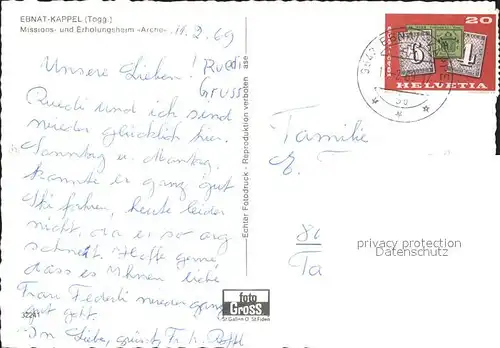 EBNAT-KAPPEL (Togg.)
Missions- und Erholungsheim «Arche»
11.2.69
Unsere Lieben!
Ruedi
Gruss
Ruedi und ich sind
wieder glücklich hier.
Sonntag u. Montag
konnte er ganz gut
Ski fahren, heute leider
nicht, da es so arg
schneit. Hoffe gerne,
dass es Ihnen liebe
Frau Federli wieder ganz
gut geht.
In Liebe, grüsst Fr. k.
32241
Echter Fotodruck - Reproduktion verboten
foto
Gross
St. Gallen O St. Fiden
20
6
1
HELVETIA
9642 EBNAT
Familie
E.
80
Ta
privacy protection
Datenschutz